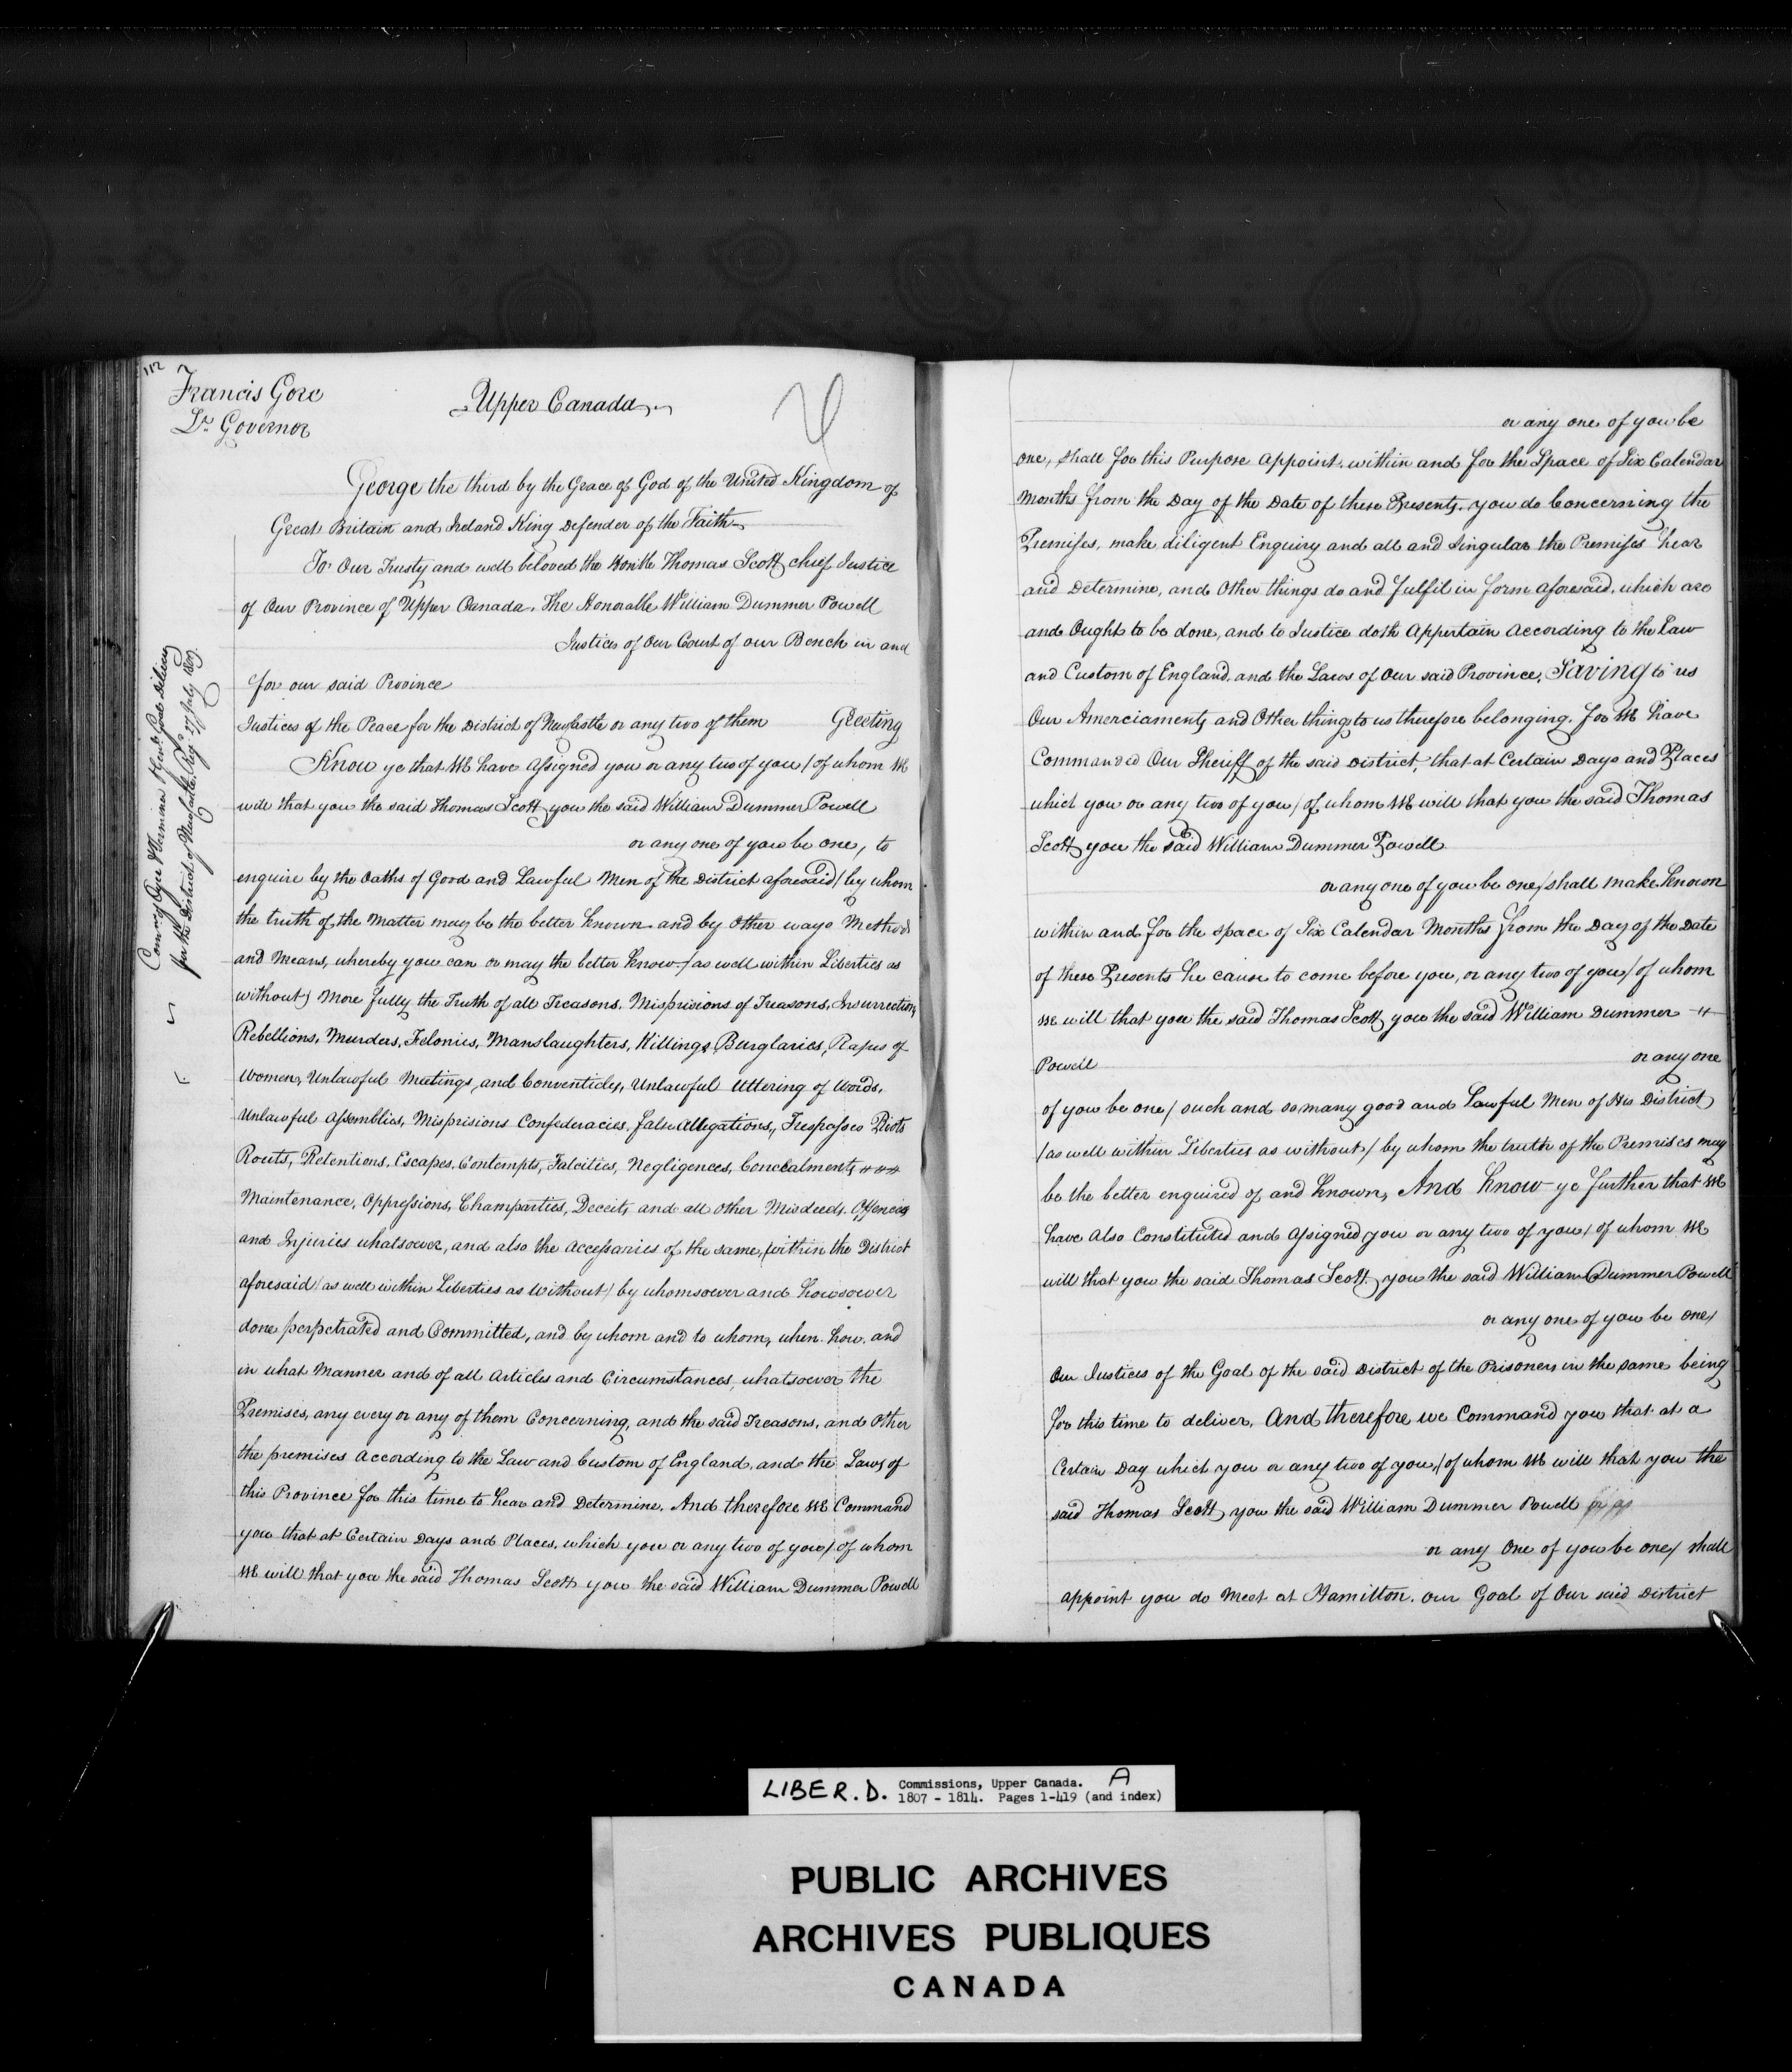 112
Francis Gore
Lt. Governor
Upper Canada
Comn. of Oyer & Terminer & Genl. Goal Delivery
for the District of Newcastle. Reg. 27 July 1809.
George the third by the Grace of God of the United Kingdom of
Great Britain and Ireland King Defender of the Faith
To Our Trusty and well beloved the Honble Thomas Scott chief Justice
of Our Province of Upper Canada. The Honorable William Dummer Powell
Justices of Our Court of our Bench in and
for our said Province
Justices of the Peace for the District of Newcastle or any two of them Greeting
Know ye that We have Assigned you or any two of you / of whom We
will that you the said Thomas Scott you the said William Dummer Powell
or any one of you be one, to
enquire by the Oaths of Good and Lawful Men of the District aforesaid / by whom
the truth of the Matter may be the better known and by Other ways Methods
and Means, whereby you can or may the better know / as well within Liberties as
without) More fully the Truth of all Treasons, Misprisions of Treasons, Insurrections
Rebellions, Murders, Felonies, Manslaughters, Killings, Burglaries, Rapes of
Women, Unlawful Meetings, and Conventicles, Unlawful Uttering of Words,
Unlawful Assemblies, Misprisions Confederacies, false Allegations, Trespasses Riots
Routs, Retentions, Escapes, Contempts, Falcities, Negligences, Concealments
Maintenance, Oppressions, Champarties, Deceits, and all other Misdeeds. Offences
and Injuries whatsoever, and also the Accessaries of the same, (within the District
aforesaid / as well within Liberties as Without / by whomsoever and howsoever
done perpetrated and Committed, and by whom and to whom, when how, and
in what Manner and of all Articles and Circumstances, whatsoever the
Premises, any every or any of them Concerning, and the said Treasons, and Other
the premises According to the Law and Custom of England, and the Laws of
this Province for this time to hear and Determine. And therefore We Command
you that at Certain Days and Places, which you or any two of you / of whom
We will that you the said Thomas Scott you the said William Dummer Powell
or any one of you be
one, shall for this Purpose Appoint, within and for the Space of Six Calendar
Months from the Day of the Date of these Presents, you do Concerning the
Premises, make diligent Enquiry and all and Singular the Premises hear
and Determine, and Other things do and fulfil in form aforesaid, which are
and Ought to be done, and to Justice doth Appertain According to the Law
and Custom of England, and the Laws of Our said Province, Saving to us
Our Amerciaments and Other thing to us therefore belonging. for We have
Commanded Our Sheriff of the said District, that at Certain Days and Places
which you or any two of you / of whom We will that you the said Thomas
Scott you the said William Dummer Powell
or any one of you be one / shall make known
within and for the space of Six Calendar Months from the Day of the Date
of these Presents he cause to come before you, or any two of you / of whom
We will that you the said Thomas Scott you the said William Dummer
Powell or any one
of you be one / such and so many good and Lawful Men of His District
/ as well within Liberties as without / by whom the truth of the Premises may
be the better enquired of and known, And Know ye further that We
have Also Constituted and Assigned you or any two of you / of whom We
will that you the said Thomas Scott, you the said William Dummer Powell
or any one of you be one /
Our Justices of the Goal of the said District of the Prisoners in the same being
for this time to deliver, And therefore we Command you that at a
Certain Day which you or any two of you, / of whom We will that you the
said Thomas Scott you the said William Dummer Powell
or any One of you be one / shall
appoint you do Meet at Hamilton. our Goal of Our said District
LIBER. D. Commissions, Upper Canada. A
1807 - 1814. Pages 1-419 (and index)
PUBLIC ARCHIVES
ARCHIVES PUBLIQUES
CANADA